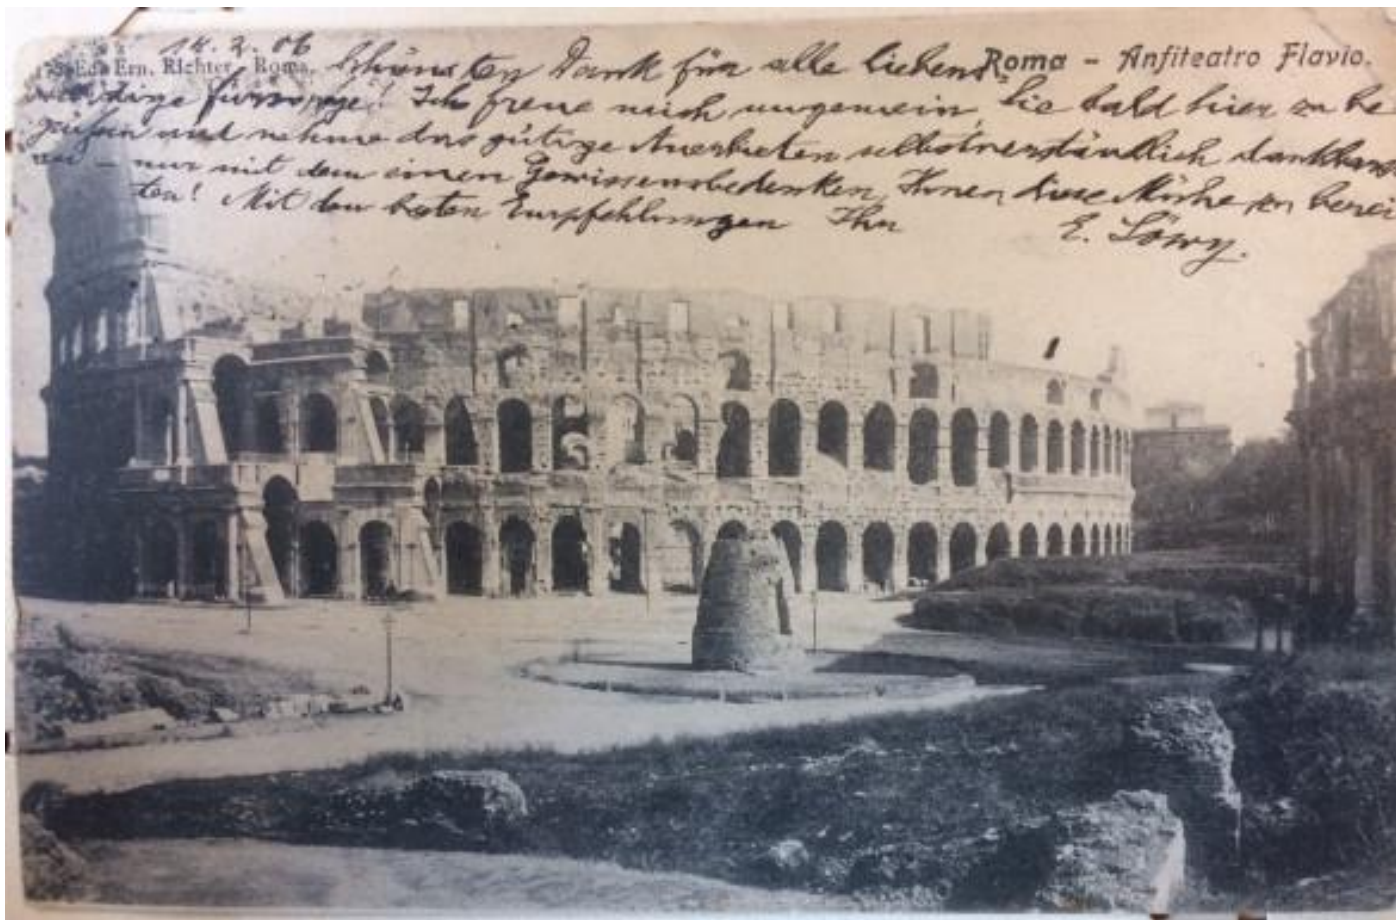 14. 2. 06
Ed. Ern. Richter, Roma.
Roma - Anfiteatro Flavio.
Schönsten Dank für alle liebens-
würdige Fürsorge! Ich freue mich ungemein, Sie bald hier zu be
grüßen und nehme das gütige Anerbieten selbstverständlich dankbar
an – nur mit dem einen Gewissensbedenken, Ihnen diese Mühe zu berei
ten! Mit den besten Empfehlungen Ihr
E. Löwy.